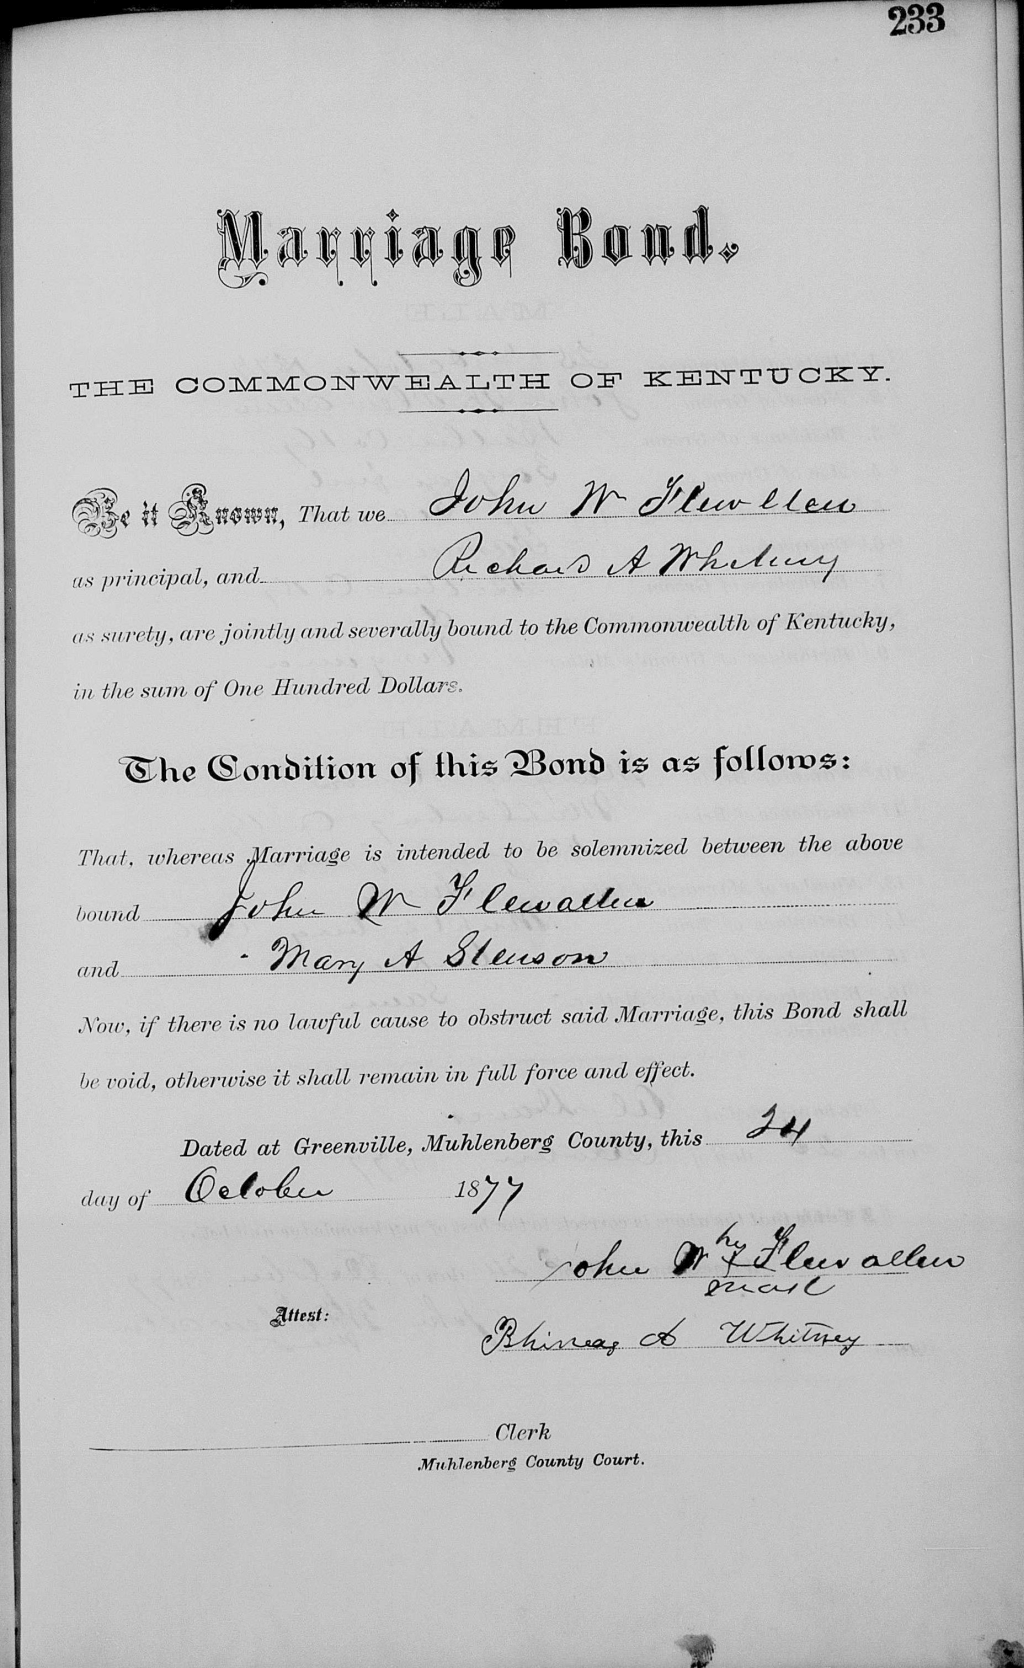 233
Marriage Bond.
THE COMMONWEALTH OF KENTUCKY.
Be it Known, That we John W Flewellen
as principal, and Richard A Whitney
as surety, are jointly and severally bound to the Commonwealth of Kentucky,
in the sum of One Hundred Dollars.
The Condition of this Bond is as follows:
That, whereas Marriage is intended to be solemnized between the above
bound John W Flewallen
and Mary A Stenson
Now, if there is no lawful cause to obstruct said Marriage, this Bond shall
be void, otherwise it shall remain in full force and effect.
Dated at Greenville, Muhlenberg County, this 24
day of October 1877
his
John W X Flewallen
mark
Attest:
A Whitney
Clerk
Muhlenberg County Court.